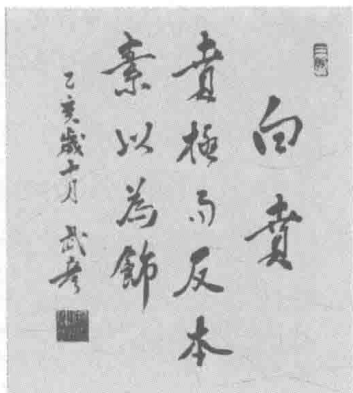 白賁
賁極而反本
素以為飾
乙亥歲十月